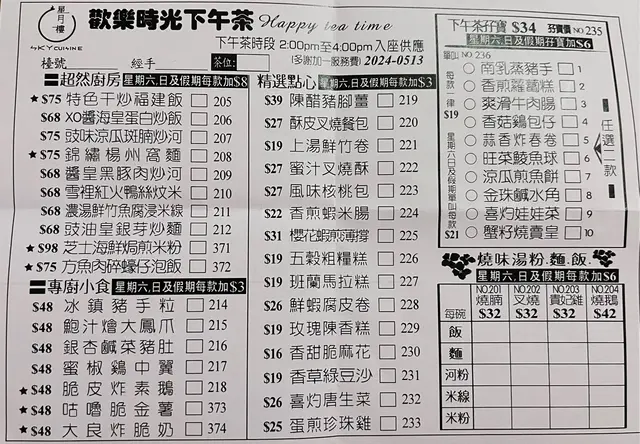 星月樓
SKYCUISINE
歡樂時光下午茶 Happy tea time
下午茶時段 2:00pm至4:00pm入座供應
(多謝加一服務費) 2024-0513
檯號 經手 茶位:
超然廚房 星期六.日及假期每款加$3
★$75 特色干炒福建飯 205
$68 XO醬海皇蛋白炒飯 206
$75 豉味涼瓜斑腩炒河 207
★$75 錦繡楊州窩麵 208
$68 醬皇黑豚肉炒河 209
$68 雪裡紅火鴨絲炆米 210
$68 濃湯鮮竹魚腐浸米線 211
$68 豉油皇銀芽炒麵 212
★$98 芝士海鮮焗煎米粉 371
★$75 方魚肉碎蠔仔泡飯 372
專廚小食 星期六.日及假期每款加$3
$48 冰鎮豬手粒 214
$48 鮑汁燴大鳳爪 215
$48 銀杏鹹菜豬肚 216
$48 蜜椒鷄中翼 217
★$48 脆皮炸素鵝 218
★$48 咕嚕脆金薯 373
★$48 大良炸脆奶 374
精選點心 星期六.日及假期每款加$3
$39 陳醋豬腳薑 219
$27 酥皮叉燒餐包 220
$19 上湯鮮竹卷 221
$27 蜜汁叉燒酥 222
$27 風味核桃包 223
$22 香煎蝦米腸 224
$31 櫻花蝦煎薄撐 225
$19 五穀粗糧糕 226
$19 班蘭馬拉糕 227
$26 鮮蝦腐皮卷 228
$19 玫瑰陳香糕 229
$16 香甜脆麻花 230
$19 香草綠豆沙 231
$26 喜灼唐生菜 232
$25 蛋煎珍珠雞 233
下午茶孖寶 $34 孖寶價 NO.235
星期六.日及假期孖寶加$6
單叫 NO.236
每款一律$19
星期六日及假期單叫每款$21
南乳蒸豬手 1
香煎蘿蔔糕 2
爽滑牛肉腸 3
香菇鷄包仔 4
蒜香炸春卷 5
旺菜鯪魚球 6
涼瓜煎魚餅 7
金珠鹹水角 8
喜灼娃娃菜 9
蟹籽燒賣皇 10
任選二款
燒味湯粉.麵.飯
星期六.日及假期每款加$6
NO.201 NO.202 NO.203 NO.204
燒腩 叉燒 貴妃雞 燒鵝
每碗 $32 $32 $32 $42
飯
麵
河粉
米線
米粉